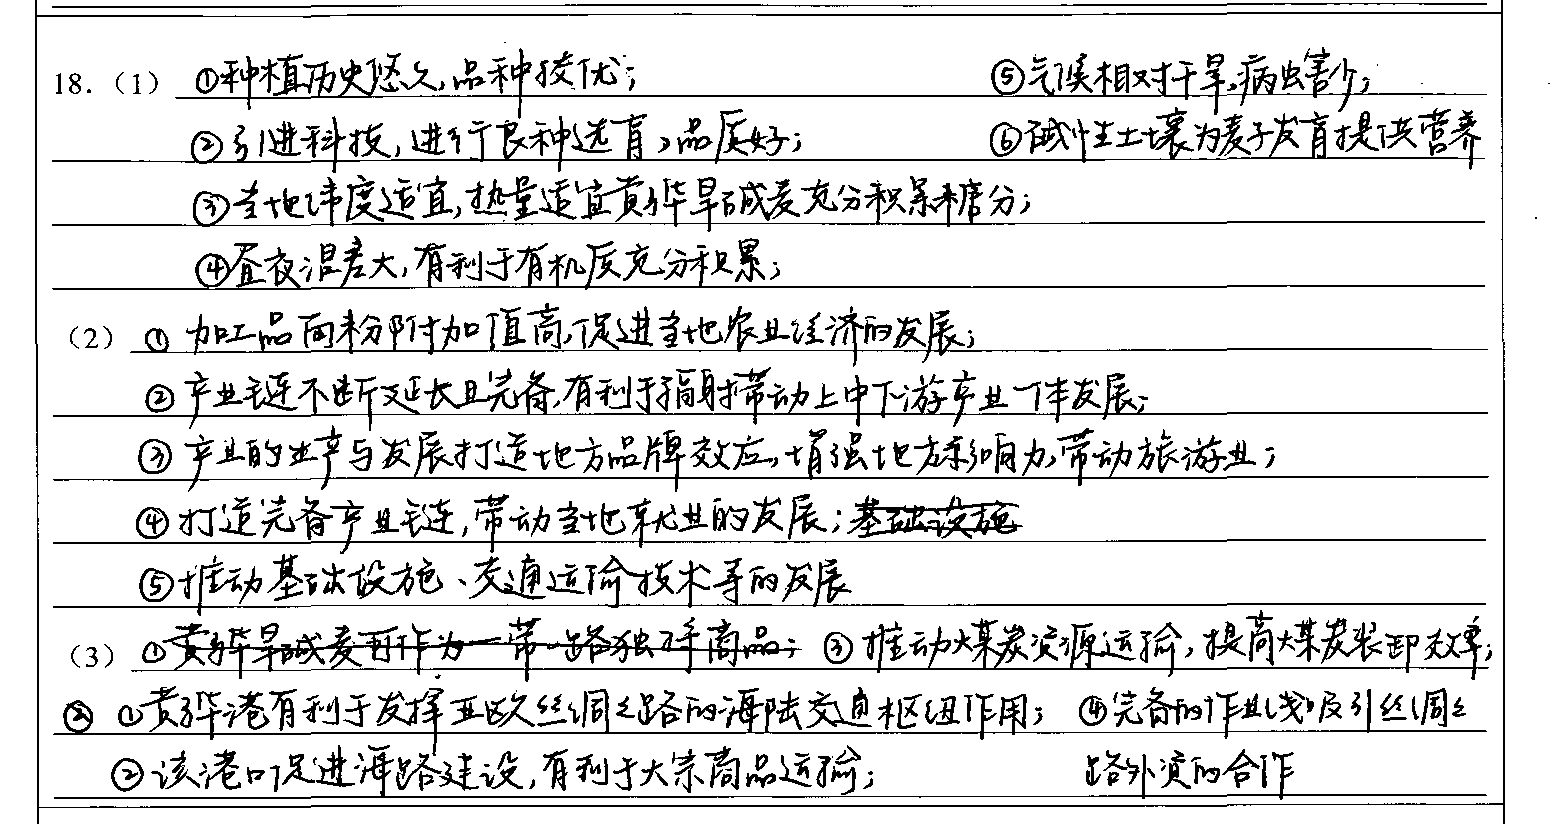 18.（1）①种植历史悠久,品种较优; ⑤气候相对干旱,病虫害少;
②引进科技,进行良种选育,品质好; ⑥碱性土壤为麦子发育提供营养
③当地纬度适宜,热量适宜黄骅旱碱麦充分积累糖分;
④昼夜温差大,有利于有机质充分积累;
（2）① 加工品面粉附加值高,促进当地农业经济的发展;
② 产业链不断延长且完备,有利于辐射带动上中下游产业一体发展;
③ 产业的生产与发展打造地方品牌效应,增强地方影响力,带动旅游业;
④ 打造完备产业链,带动当地就业的发展;基础设施
⑤推动基础设施、交通运输技术等的发展
（3）①黄骅旱碱麦可作为一带一路独特商品; ③ 推动煤炭资源运输,提高煤炭装卸效率;
② ①黄骅港有利于发挥亚欧丝绸之路的海陆交通枢纽作用; ④完备的作业线吸引丝绸之
② 该港口促进海路建设,有利于大宗商品运输; 路外资的合作